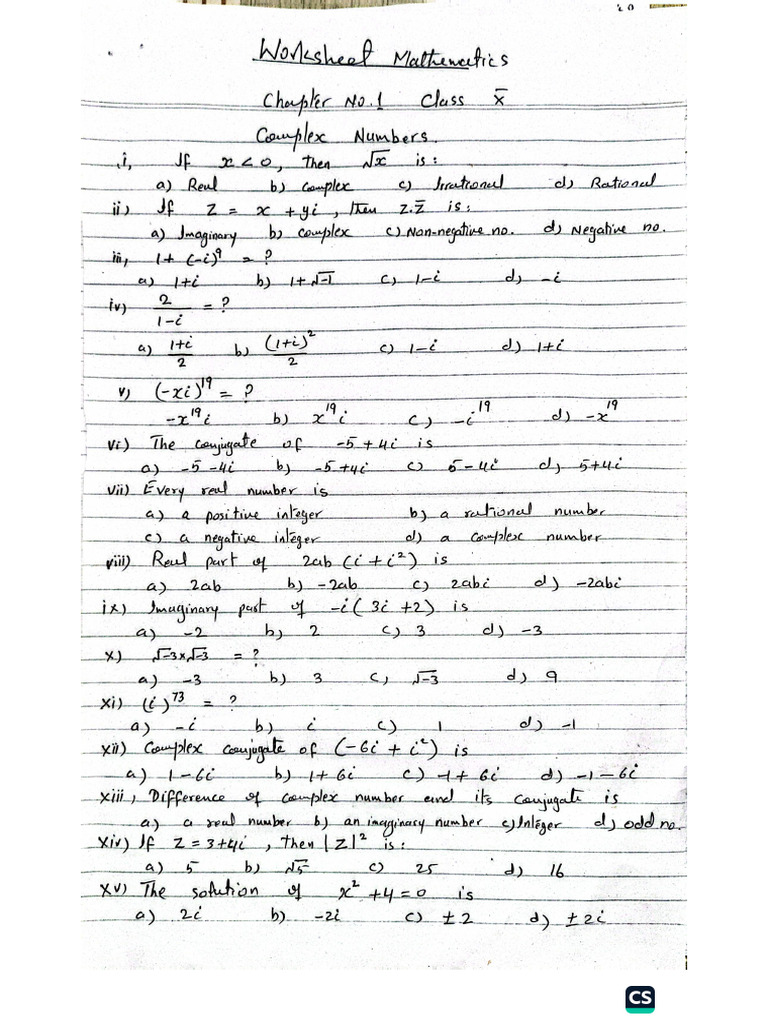 Worksheet Mathematics
Chapter No.1 Class X̄
Complex Numbers.
i, If x < 0, then √x is:
a) Real b) Complex c) Irrational d) Rational
ii) If Z = x + yi, then Z.Z̄ is:
a) Imaginary b) complex c) Non-negative no. d) Negative no.
iii, 1 + (-i)⁹ = ?
a) 1+i b) 1+√-1 c) 1-i d) -i
iv) 2/(1-i) = ?
a) (1+i)/2 b) (1+i)²/2 c) 1-i d) 1+i
v) (-xi)¹⁹ = ?
-x¹⁹i b) x¹⁹i c) -i¹⁹ d) -x¹⁹
vi) The conjugate of -5+4i is
a) -5-4i b) -5+4i c) 5-4i d) 5+4i
vii) Every real number is
a) a positive integer b) a rational number
c) a negative integer d) a complex number
viii) Real part of 2ab(i+i²) is
a) 2ab b) -2ab c) 2abi d) -2abi
ix) Imaginary part of -i(3i+2) is
a) -2 b) 2 c) 3 d) -3
x) √-3×√-3 = ?
a) -3 b) 3 c) √-3 d) 9
xi) (i)⁷³ = ?
a) -i b) i c) 1 d) -1
xii) Complex conjugate of (-6i+i²) is
a) 1-6i b) 1+6i c) -1+6i d) -1-6i
xiii, Difference of complex number and its conjugate is
a) a real number b) an imaginary number c) Integer d) odd no.
xiv) If Z = 3+4i, then |Z|² is:
a) 5 b) √5 c) 25 d) 16
xv) The solution of x²+4=0 is
a) 2i b) -2i c) ±2 d) ±2i
CS